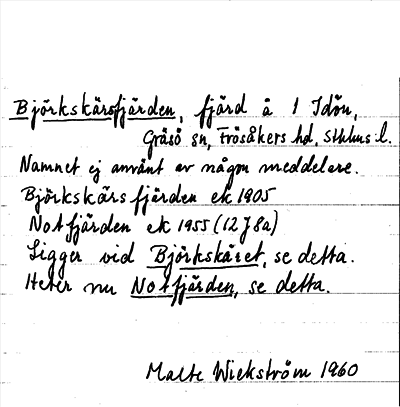 Björkskärsfjärden, fjärd å 1 Idön,
Gräsö sn, Frösåkers hd, Sthlms l.
Namnet ej använt av någon meddelare.
Björkskärsfjärden ek 1905
Notfjärden ek 1955 (12J8a)
Ligger vid Björkskäret, se detta.
Heter nu Notfjärden, se detta.
Malte Wickström 1960